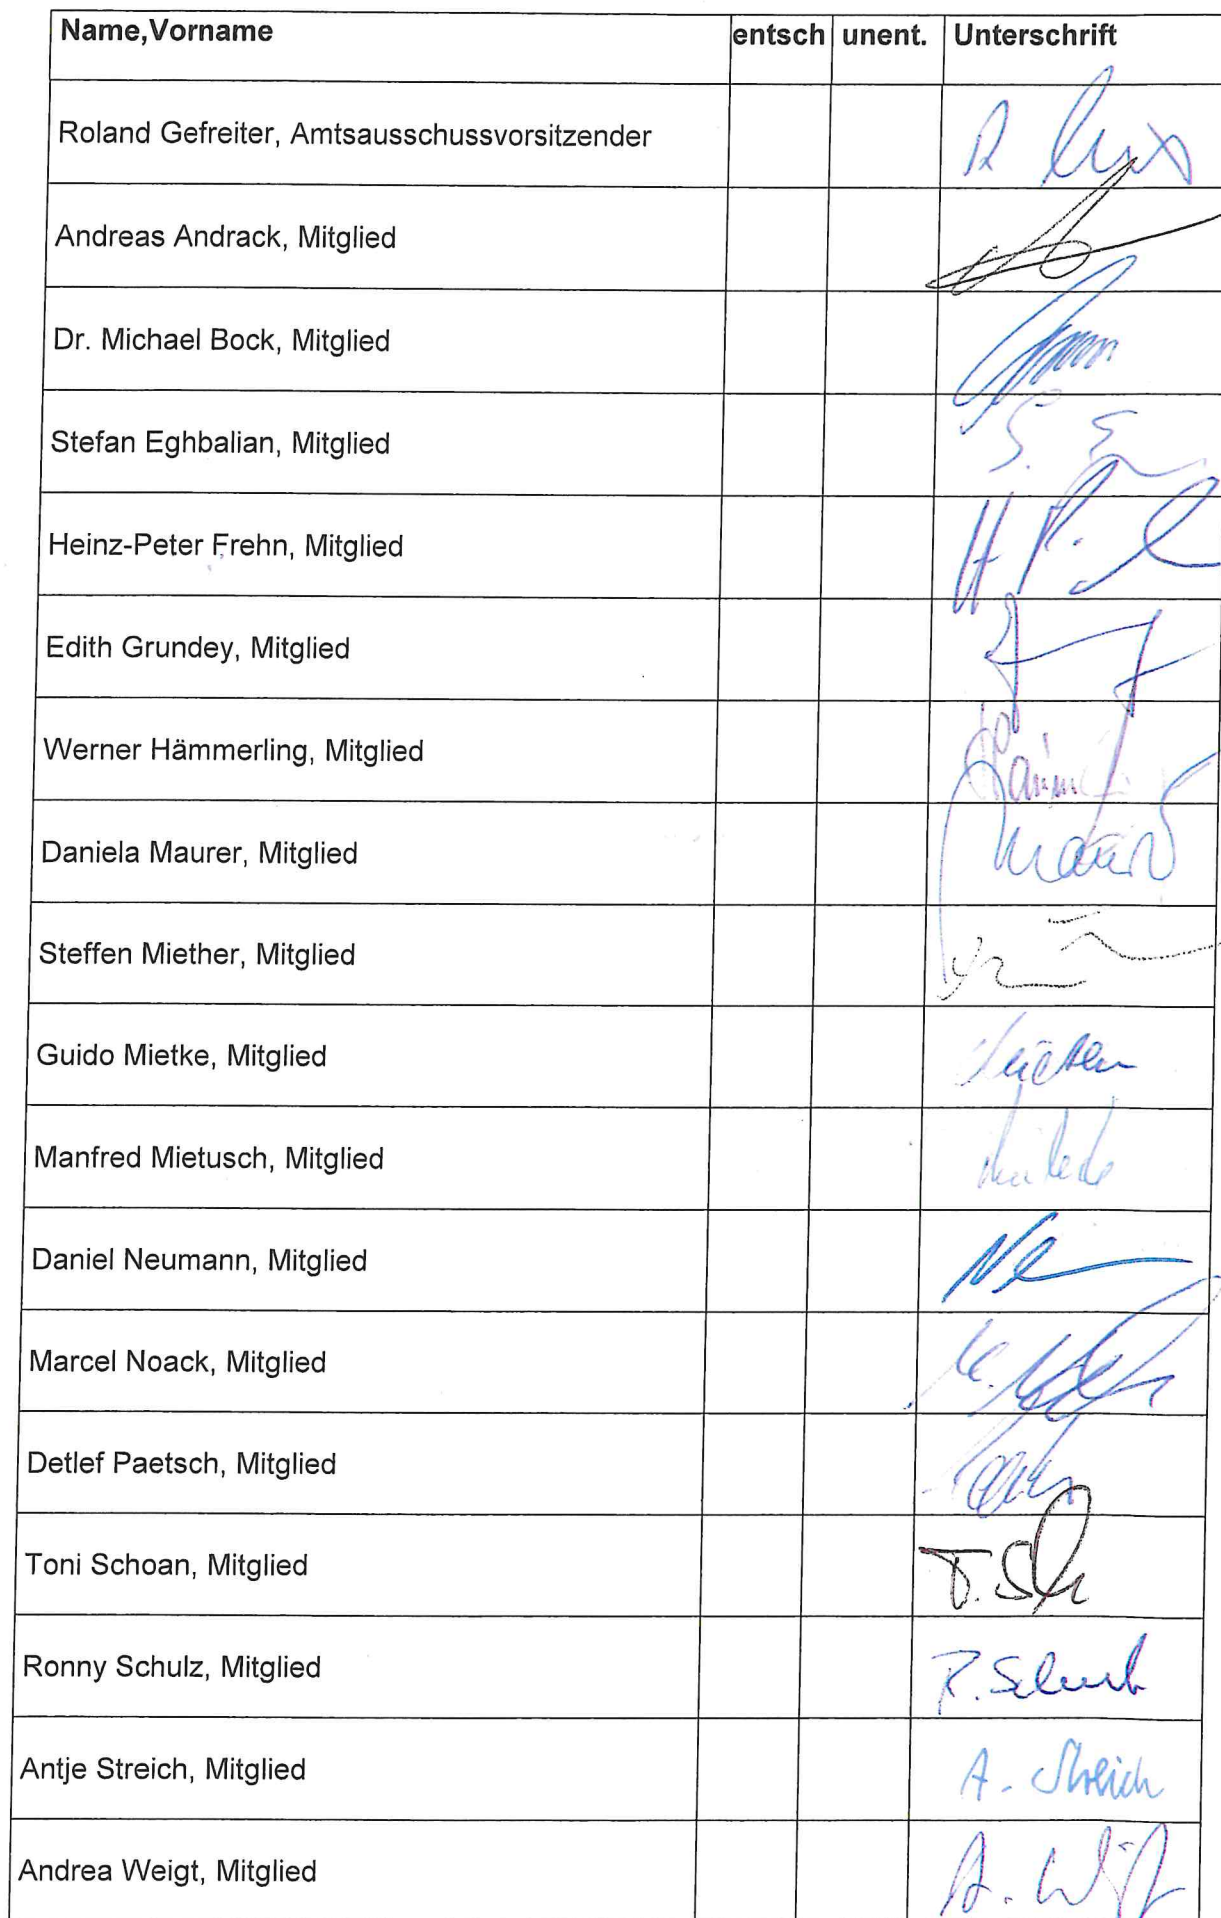 Name,Vorname entsch unent. Unterschrift
Roland Gefreiter, Amtsausschussvorsitzender R
Andreas Andrack, Mitglied
Dr. Michael Bock, Mitglied
Stefan Eghbalian, Mitglied S.
Heinz-Peter Frehn, Mitglied H P.
Edith Grundey, Mitglied
Werner Hämmerling, Mitglied
Daniela Maurer, Mitglied Maurer
Steffen Miether, Mitglied
Guido Mietke, Mitglied
Manfred Mietusch, Mitglied
Daniel Neumann, Mitglied
Marcel Noack, Mitglied M.
Detlef Paetsch, Mitglied
Toni Schoan, Mitglied T.
Ronny Schulz, Mitglied R. Schulz
Antje Streich, Mitglied A. Streich
Andrea Weigt, Mitglied A.